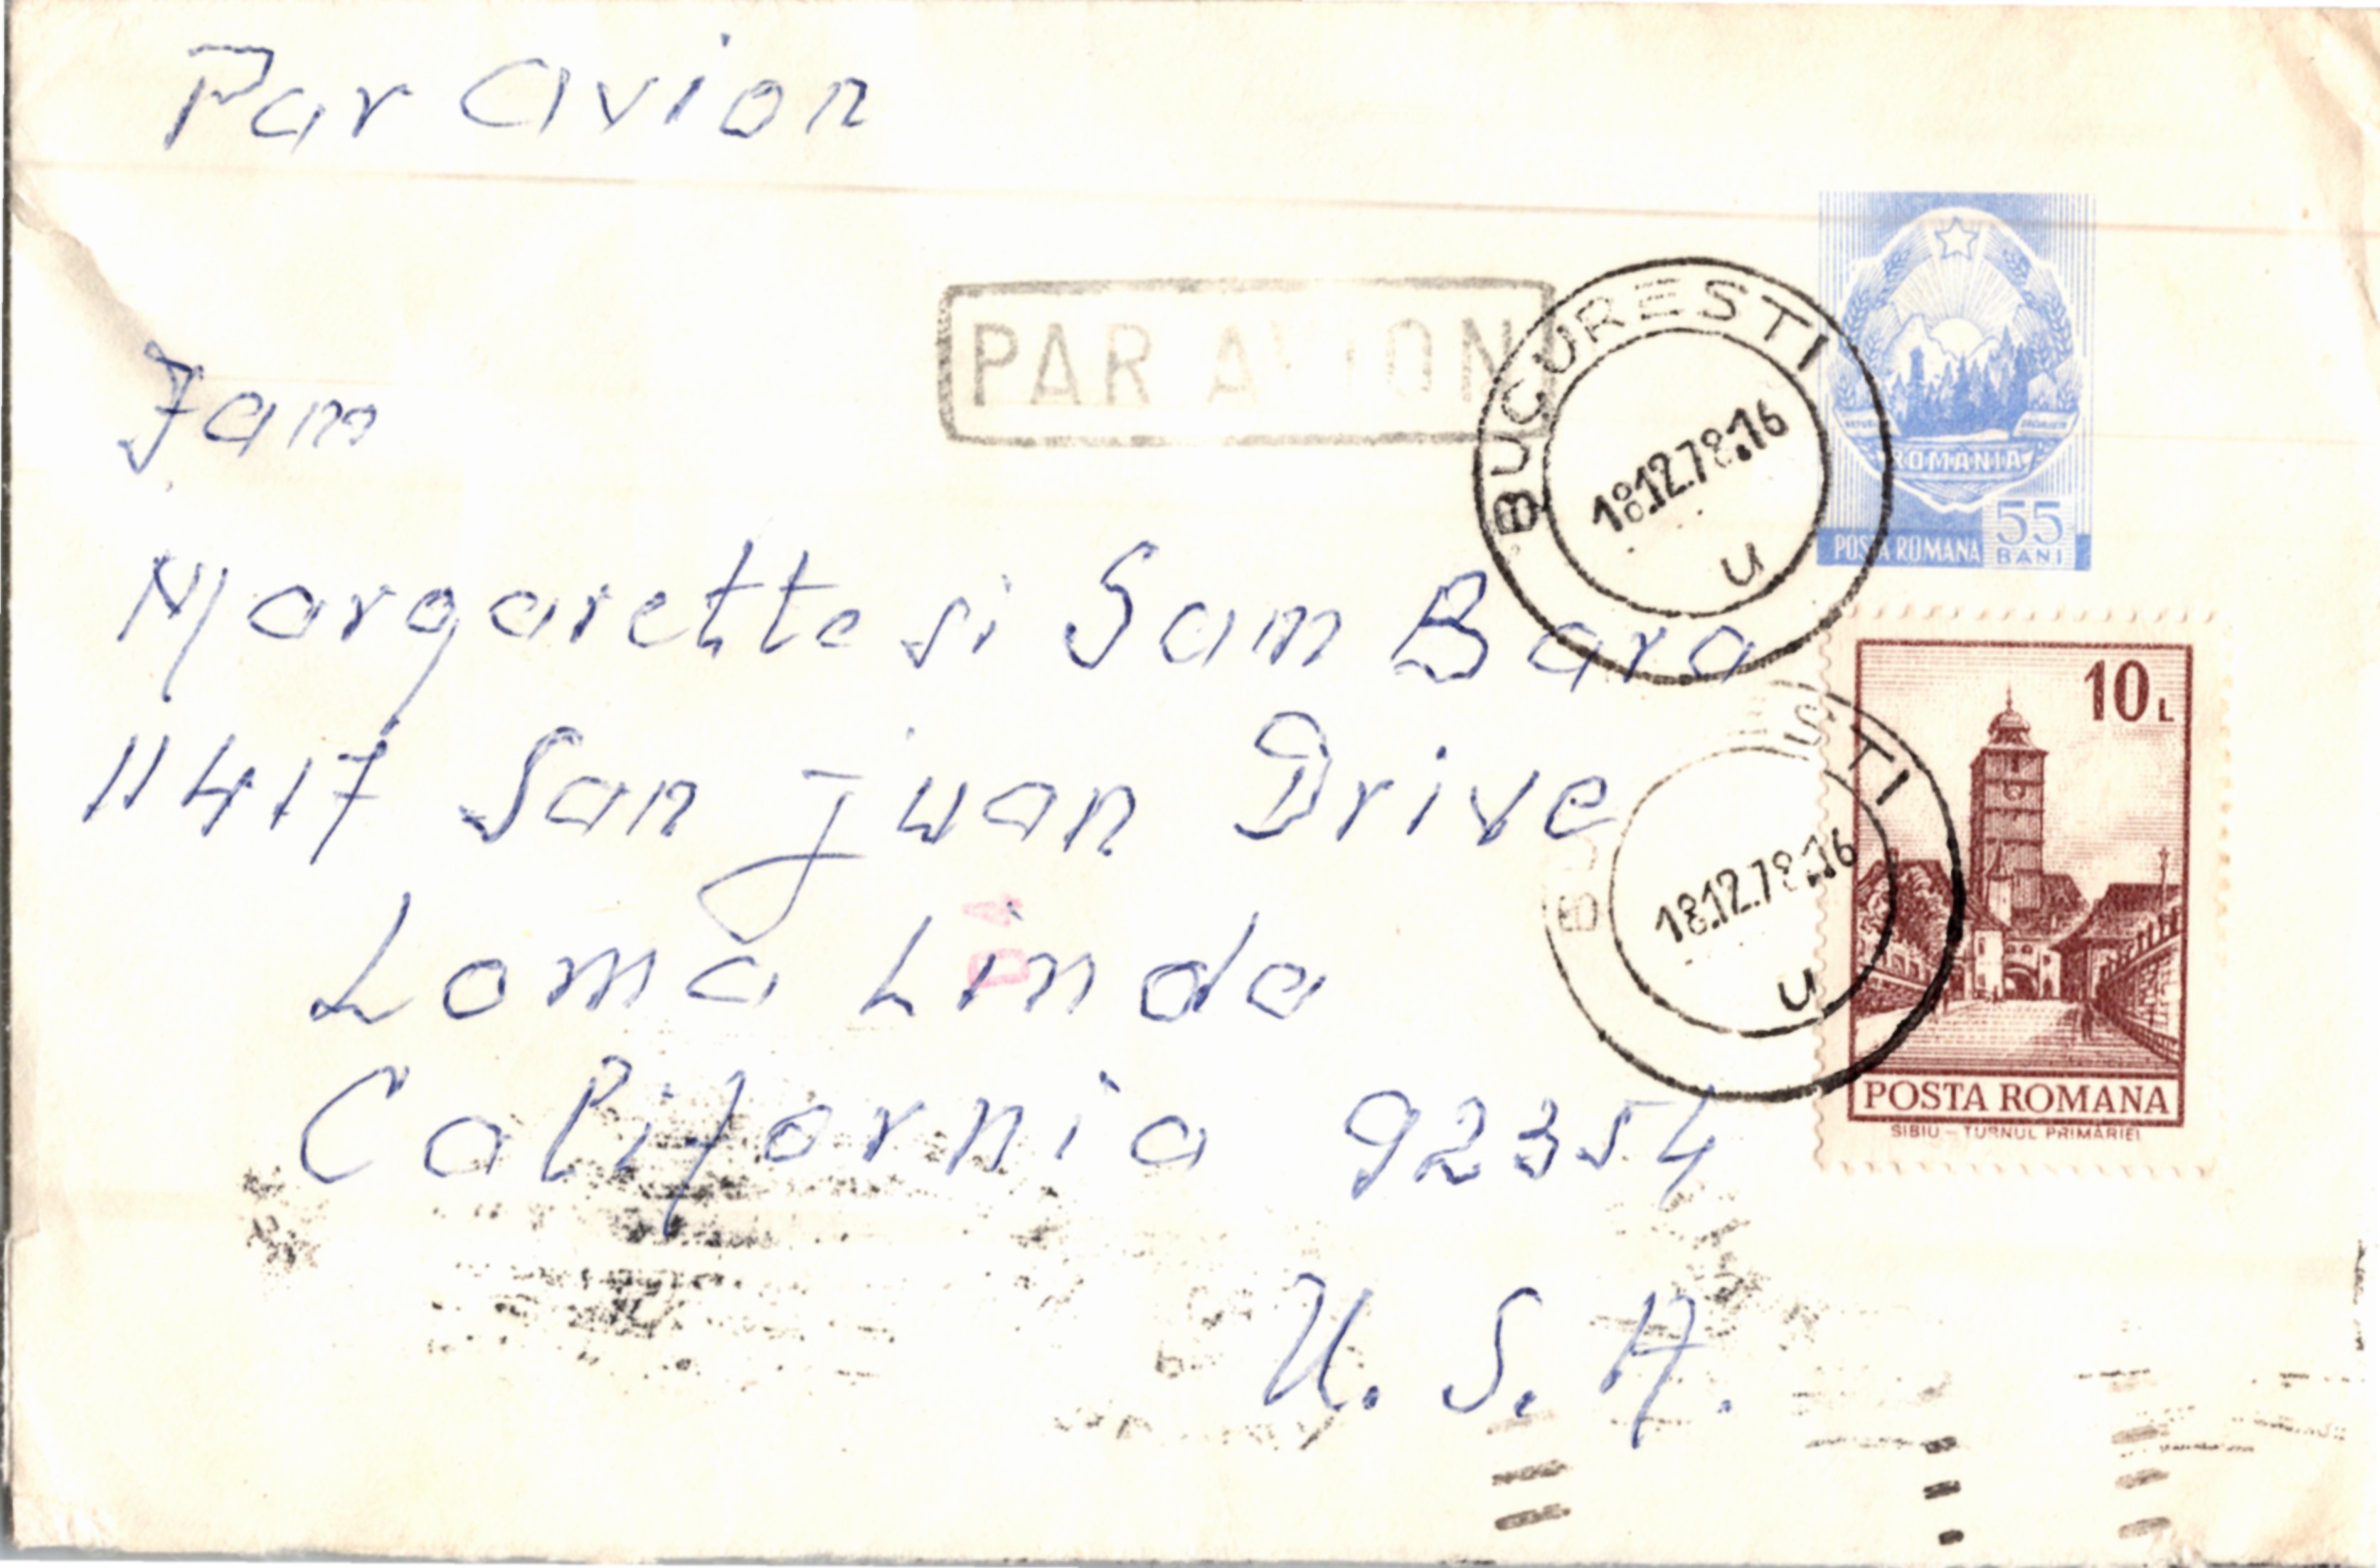 Par avion
PAR AVION
BUCURESTI
18.12.78.16
u
ROMANIA
55
BANI
POSTA ROMANA
Fam
Margarette si Sam Bara
11417 San Juan Drive
Loma Linda
California 92354
U. S. A.
D4
18.12.78.16
u
10 L
POSTA ROMANA
SIBIU – TURNUL PRIMĂRIEI